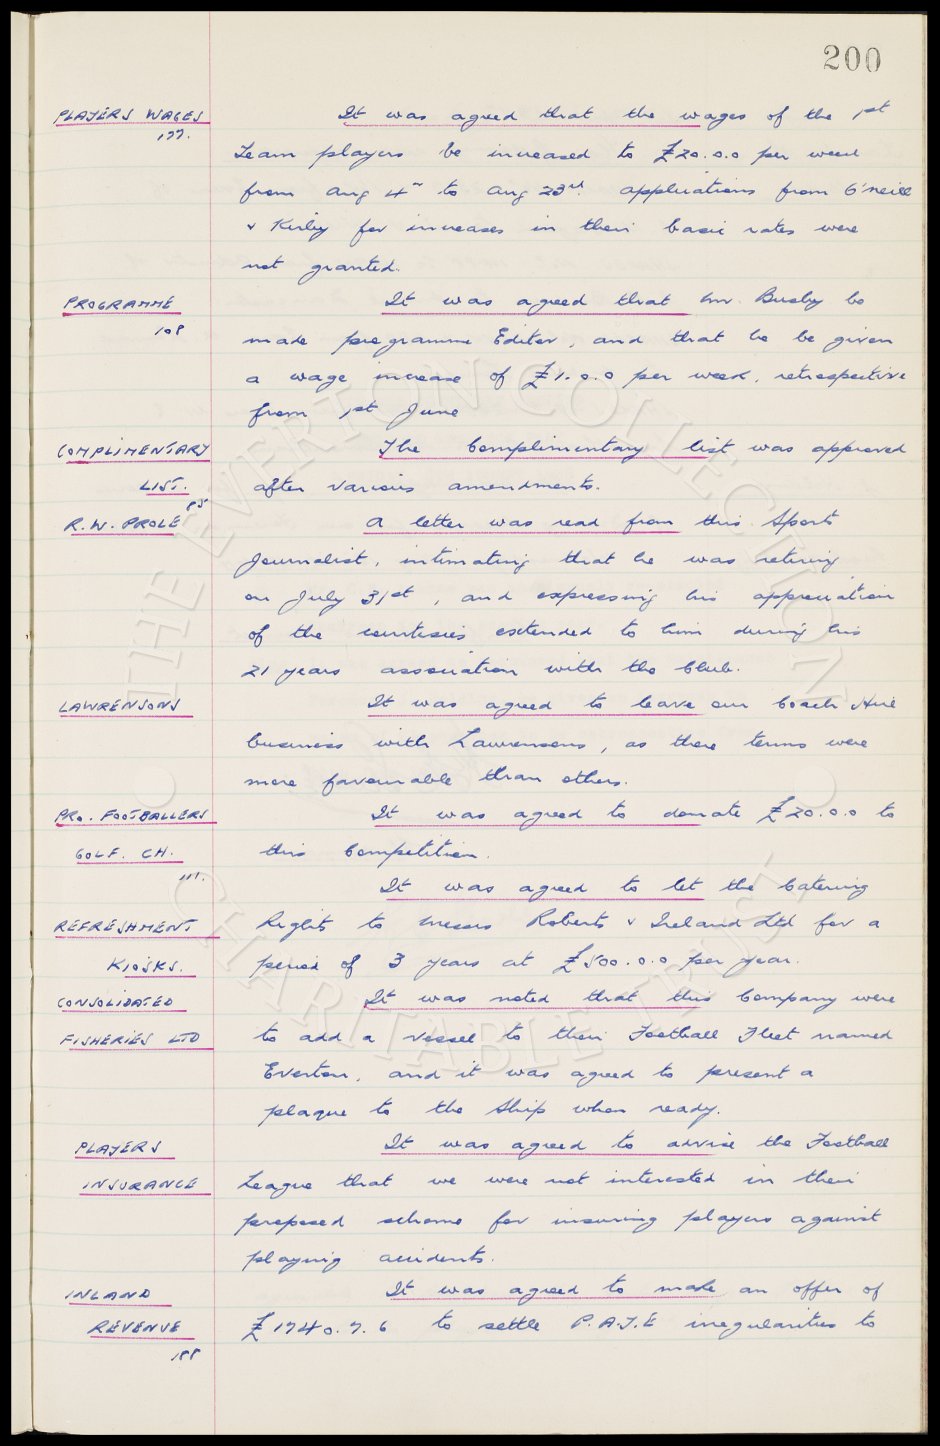 200
PLAYERS WAGES It was agreed that the wages of the 1st
177.
Team players be increased to £20.0.0 per week
from Aug 4th to Aug 23rd. Applications from O'Neill
& Kirby for increases in their basic rates were
not granted.
PROGRAMME It was agreed that Mr. Busby be
108
made programme Editor, and that he be given
a wage increase of £1.0.0 per week, retrospective
from 1st June
COMPLIMENTARY The Complimentary list was approved
LIST. after various amendments.
85
R.W. PROLE A letter was read from this Sports
Journalist, intimating that he was retiring
on July 31st, and expressing his appreciation
of the courtesies extended to him during his
21 years association with the Club.
LAWRENSONS It was agreed to leave our Coach Hire
business with Lawrensons, as there terms were
more favourable than others.
PRO. FOOTBALLERS It was agreed to donate £20.0.0 to
GOLF. CH. this Competition.
111.
It was agreed to let the Catering
REFRESHMENT Rights to Messrs Roberts & Ireland Ltd for a
KIOSKS. period of 3 years at £500.0.0 per year.
CONSOLIDATED It was noted that this Company were
FISHERIES LTD to add a vessel to their Football Fleet named
Everton, and it was agreed to present a
plaque to the Ship when ready.
PLAYERS It was agreed to advise the Football
INSURANCE League that we were not interested in their
proposed scheme for insuring players against
playing accidents.
INLAND It was agreed to make an offer of
REVENUE £1740.7.6 to settle P.A.Y.E irregularities to
188
THE EVERTON COLLECTION
CHARITABLE TRUST